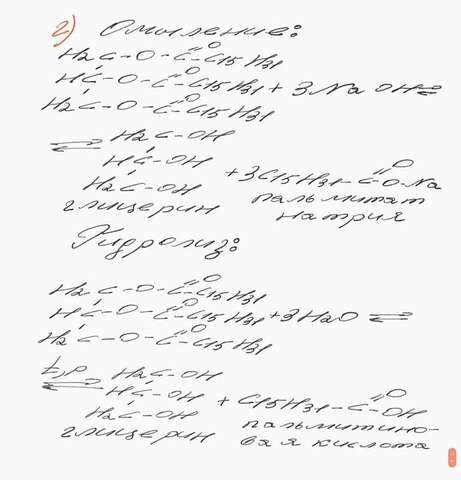 2) Омыление:
H2C-O-C=O-C15H31
HC-O-C=O-C15H31 + 3NaOH ⇌
H2C-O-C=O-C15H31
⇌ H2C-OH
HC-OH
H2C-OH + 3C15H31-C=O-O-Na
глицерин пальмитат натрия
Гидролиз:
H2C-O-C=O-C15H31
HC-O-C=O-C15H31 + 3H2O ⇌
H2C-O-C=O-C15H31
t,p ⇌ H2C-OH
HC-OH
H2C-OH + C15H31-C=O-OH
глицерин пальмитино-
вая кислота